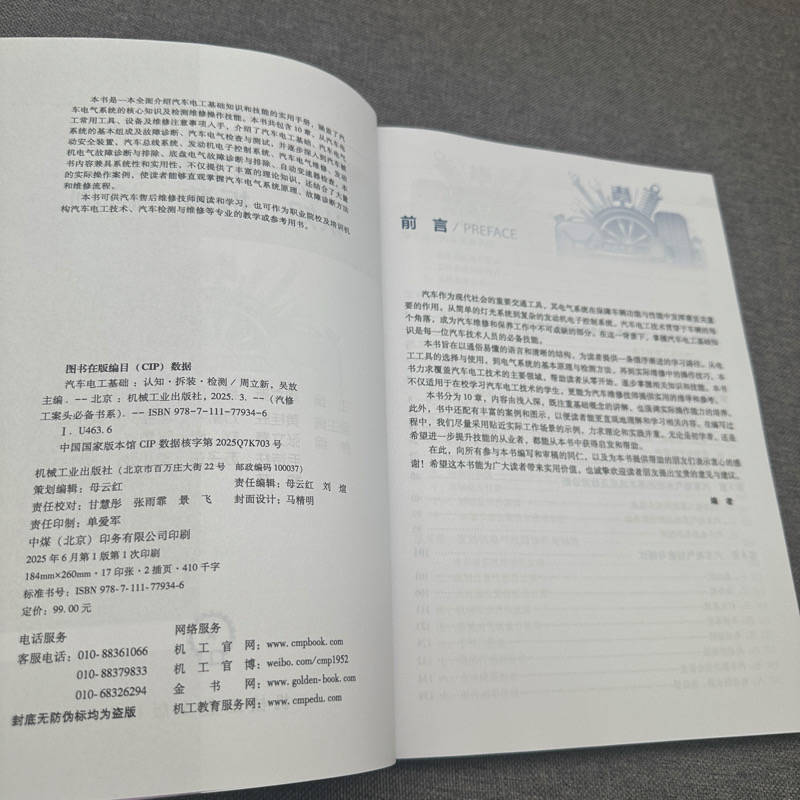 本书是一本全面介绍汽车电工基础知识和技能的实用手册，涵盖了汽
车电气系统的核心知识及检测维修操作技能。本书共包含10章，从汽车电
工常用工具、设备及维修注意事项入手，介绍了汽车电工基础、汽车电气
系统的基本组成及故障诊断、汽车电气检查与测试，并逐步深入到汽车被
动安全装置、汽车总线系统、发动机电子控制系统、汽车电气维修、发动
机电气故障诊断与排除、底盘电气故障诊断与排除、自动变速器检查。本
书内容兼具系统性和实用性，不仅提供了丰富的理论知识，还结合了大量
的实际操作案例，使读者能够直观掌握汽车电气系统原理、故障诊断方法
和维修流程。
本书可供汽车售后维修技师阅读和学习，也可作为职业院校及培训机
构汽车电工技术、汽车检测与维修等专业的教学或参考用书。
图书在版编目（CIP）数据
汽车电工基础：认知·拆装·检测 / 周立新，吴放
主编. -- 北京：机械工业出版社，2025. 3. --（汽修
工案头必备书系）. -- ISBN 978-7-111-77934-6
Ⅰ. U463.6
中国国家版本馆 CIP 数据核字第 2025Q7K703 号
机械工业出版社（北京市百万庄大街 22 号 邮政编码 100037）
策划编辑：母云红 责任编辑：母云红 刘 煊
责任校对：甘慧彤 张雨霏 景 飞 封面设计：马精明
责任印制：单爱军
中煤（北京）印务有限公司印刷
2025 年 6 月第 1 版第 1 次印刷
184mm×260mm · 17 印张 · 2 插页 · 410 千字
标准书号：ISBN 978-7-111-77934-6
定价：99.00 元
电话服务 网络服务
客服电话：010-88361066 机 工 官 网：www.cmpbook.com
010-88379833 机 工 官 博：weibo.com/cmp1952
010-68326294 金 书 网：www.golden-book.com
封底无防伪标均为盗版 机工教育服务网：www.cmpedu.com
前 言 / PREFACE
汽车作为现代社会的重要交通工具，其电气系统在保障车辆功能与性能中发挥着至关重
要的作用。从简单的灯光系统到复杂的发动机电子控制系统，汽车电工技术贯穿于车辆的每
个角落，成为汽车维修和保养工作中不可或缺的部分。在这一背景下，掌握汽车电工基础知
识是每一位汽车技术人员的必备技能。
本书旨在以通俗易懂的语言和清晰的结构，为读者提供一条循序渐进的学习路径。从电
工工具的选择与使用，到电气系统的基本原理与检测方法，再到实际维修中的操作技巧，本
书力求覆盖汽车电工技术的主要领域，帮助读者从零开始，逐步掌握相关知识和技能。本书
不仅适用于在校学习汽车电工技术的学生，更能为汽车维修技师提供实用的指导和参考。
本书分为 10 章，内容由浅入深，既注重基础概念的讲解，也强调实际操作能力的培养。
此外，书中还配有丰富的案例和图示，以便读者能更直观地理解和学习相关内容。在编写过
程中，我们尽量采用贴近实际工作场景的示例，力求理论和实践并重。无论是初学者，还是
希望进一步提升技能的从业者，都能从本书中获得启发和帮助。
在此，向所有参与本书编写和审稿的同仁，以及为本书提供帮助的朋友们表示衷心的感
谢！希望这本书能为广大读者带来实用价值，也诚挚欢迎读者朋友提出宝贵的意见与建议。
编 者